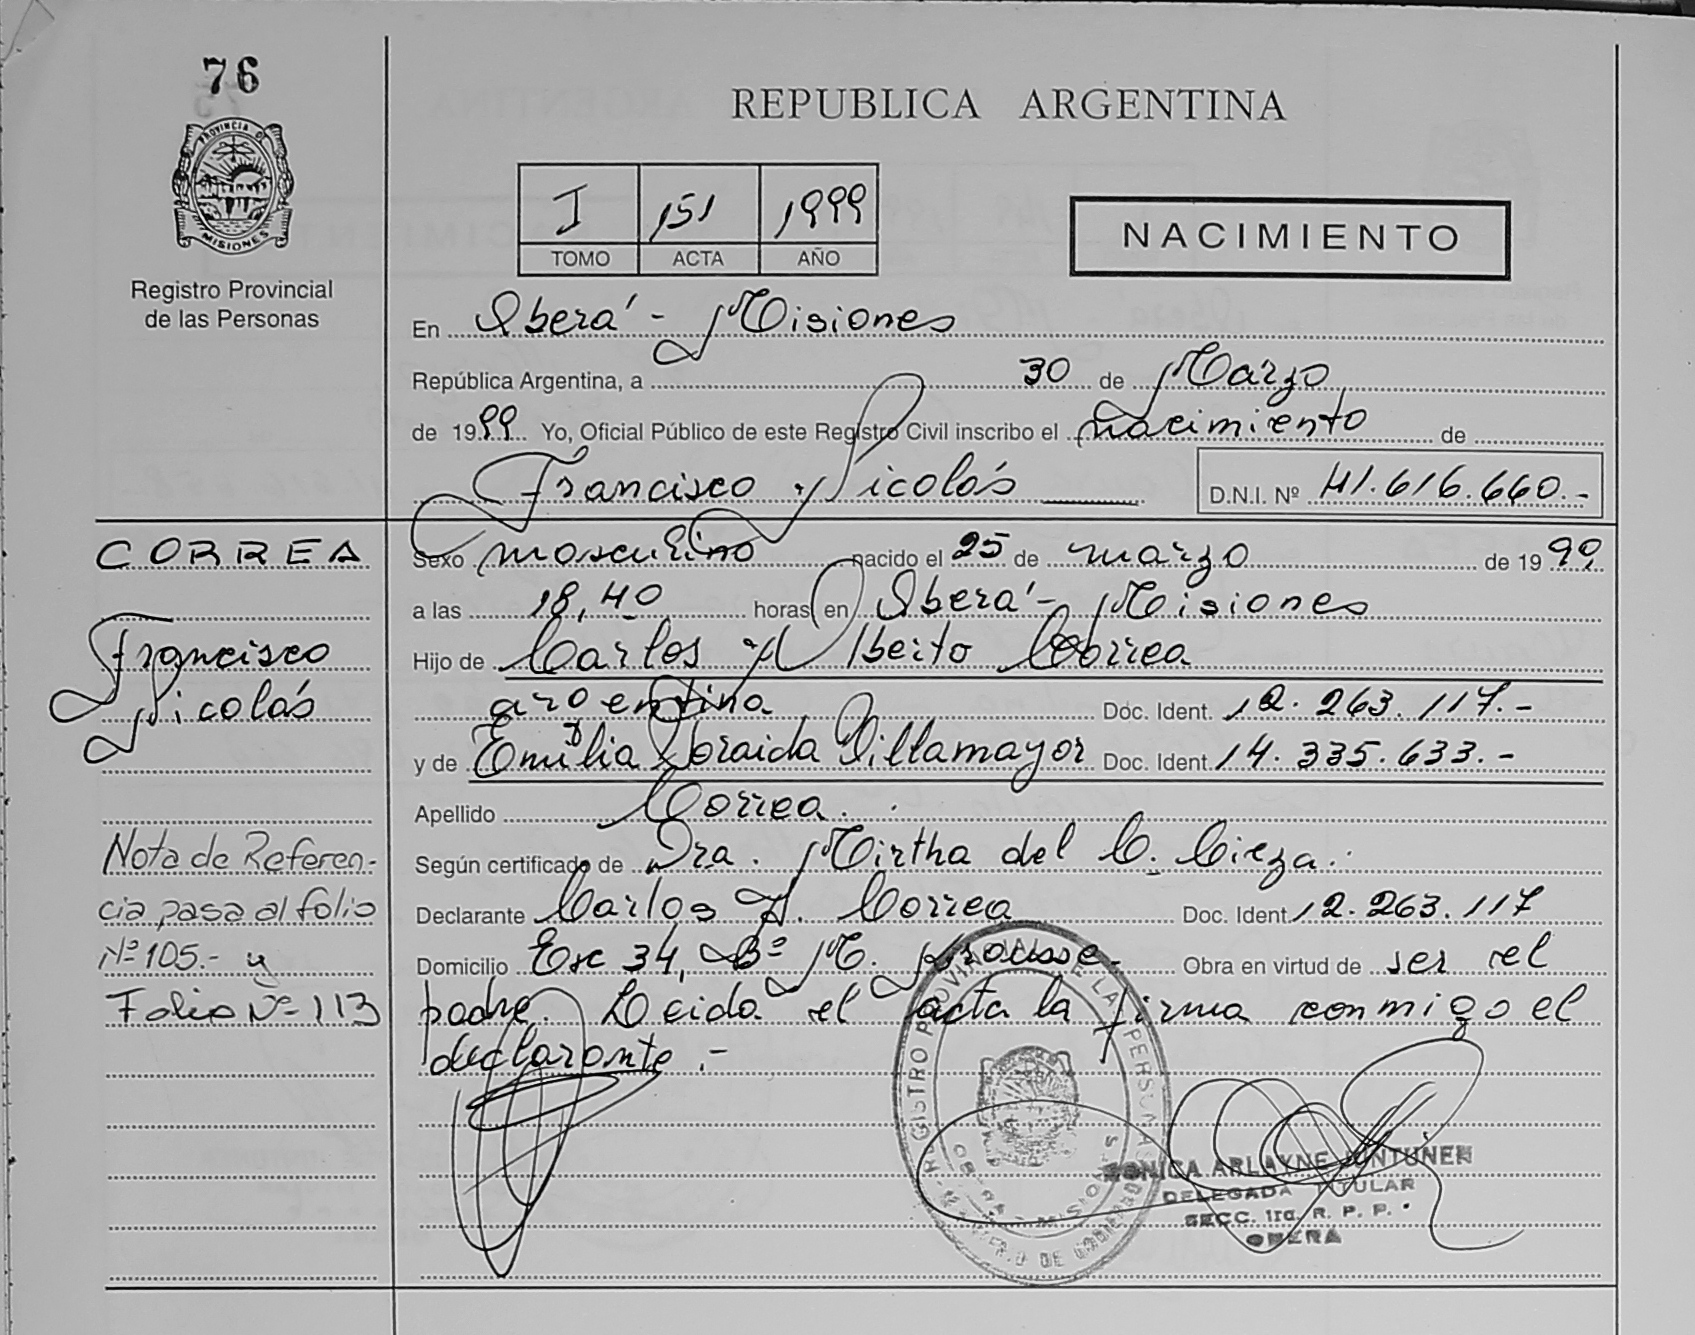 76
PROVINCIA DE
MISIONES
Registro Provincial
de las Personas
REPUBLICA ARGENTINA
I 151 1999
TOMO ACTA AÑO
NACIMIENTO
En Oberá - Misiones
República Argentina, a 30 de Marzo
de 1999 Yo, Oficial Público de este Registro Civil inscribo el nacimiento de
Francisco Nicolás D.N.I. Nº 41.616.660.-
CORREA
Francisco
Nicolás
Nota de Referen-
cia pasa al folio
Nº 105.- y
Folio Nº 113
Sexo masculino nacido el 25 de marzo de 1999
a las 18,40 horas en Oberá - Misiones
Hijo de Carlos Alberto Correa
argentina Doc. Ident. 12.263.117.-
y de Emilia Zoraida Villamayor Doc. Ident. 14.335.633.-
Apellido Correa.
Según certificado de Dra. Mirtha del C. Cieza.
Declarante Carlos A. Correa Doc. Ident. 12.263.117
Domicilio Esc 34, Bº M. Obra en virtud de ser el
padre. Leida el acta la firma conmigo el
declarante.-
REGISTRO PROVINCIAL DE LAS PERSONAS
OBERA - MISIONES
MINISTERIO DE GOBIERNO
MONICA ARLAYNE
DELEGADA TITULAR
SECC. 1ra. R. P. P.
OBERA